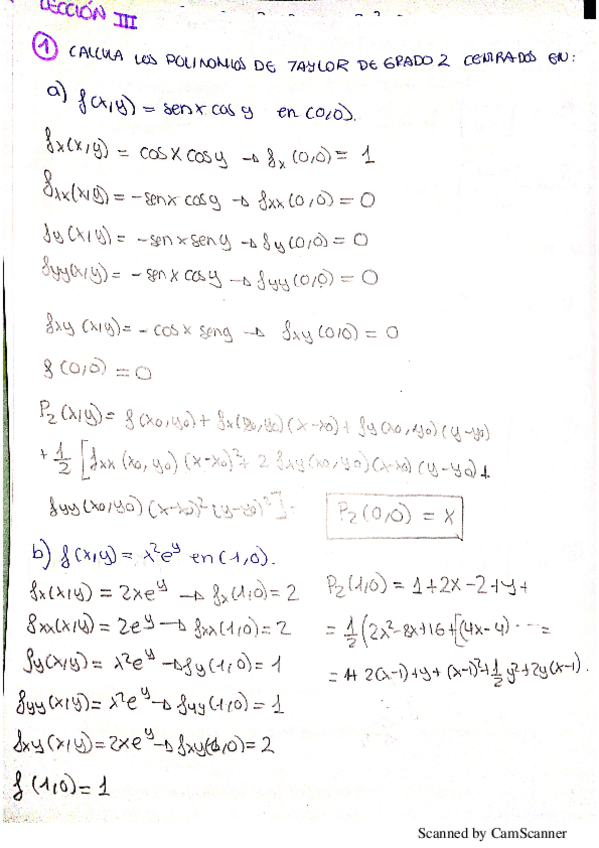 LECCIÓN III
① CALCULA LOS POLINOMIOS DE TAYLOR DE GRADO 2 CENTRADOS EN:
a) f(x,y) = senx cos y en (0,0).
fx(x,y) = cosx cosy → fx(0,0) = 1
fxx(x,y) = -senx cosy → fxx(0,0) = 0
fy(x,y) = -senx seny → fy(0,0) = 0
fyy(x,y) = -senx cosy → fyy(0,0) = 0
fxy(x,y) = -cosx seny → fxy(0,0) = 0
f(0,0) = 0
P2(x,y) = f(x0,y0) + fx(x0,y0)(x-x0) + fy(x0,y0)(y-y0)
+ 1/2 [fxx(x0,y0)(x-x0)² + 2 fxy(x0,y0)(x-x0)(y-y0) +
fyy(x0,y0)(x-x0)²(y-y0)²].
P2(0,0) = x
b) f(x,y) = x²e^y en (1,0).
fx(x,y) = 2xe^y → fx(1,0) = 2
fxx(x,y) = 2e^y → fxx(1,0) = 2
fy(x,y) = x²e^y → fy(1,0) = 1
fyy(x,y) = x²e^y → fyy(1,0) = 1
fxy(x,y) = 2xe^y → fxy(1,0) = 2
f(1,0) = 1
P2(1,0) = 1+2x-2+y+
= 1/2 (2x²-8x+16+[(4x-4) ... =
= 1+ 2(x-1)+y+(x-1)²+1/2 y²+2y(x-1).
Scanned by CamScanner